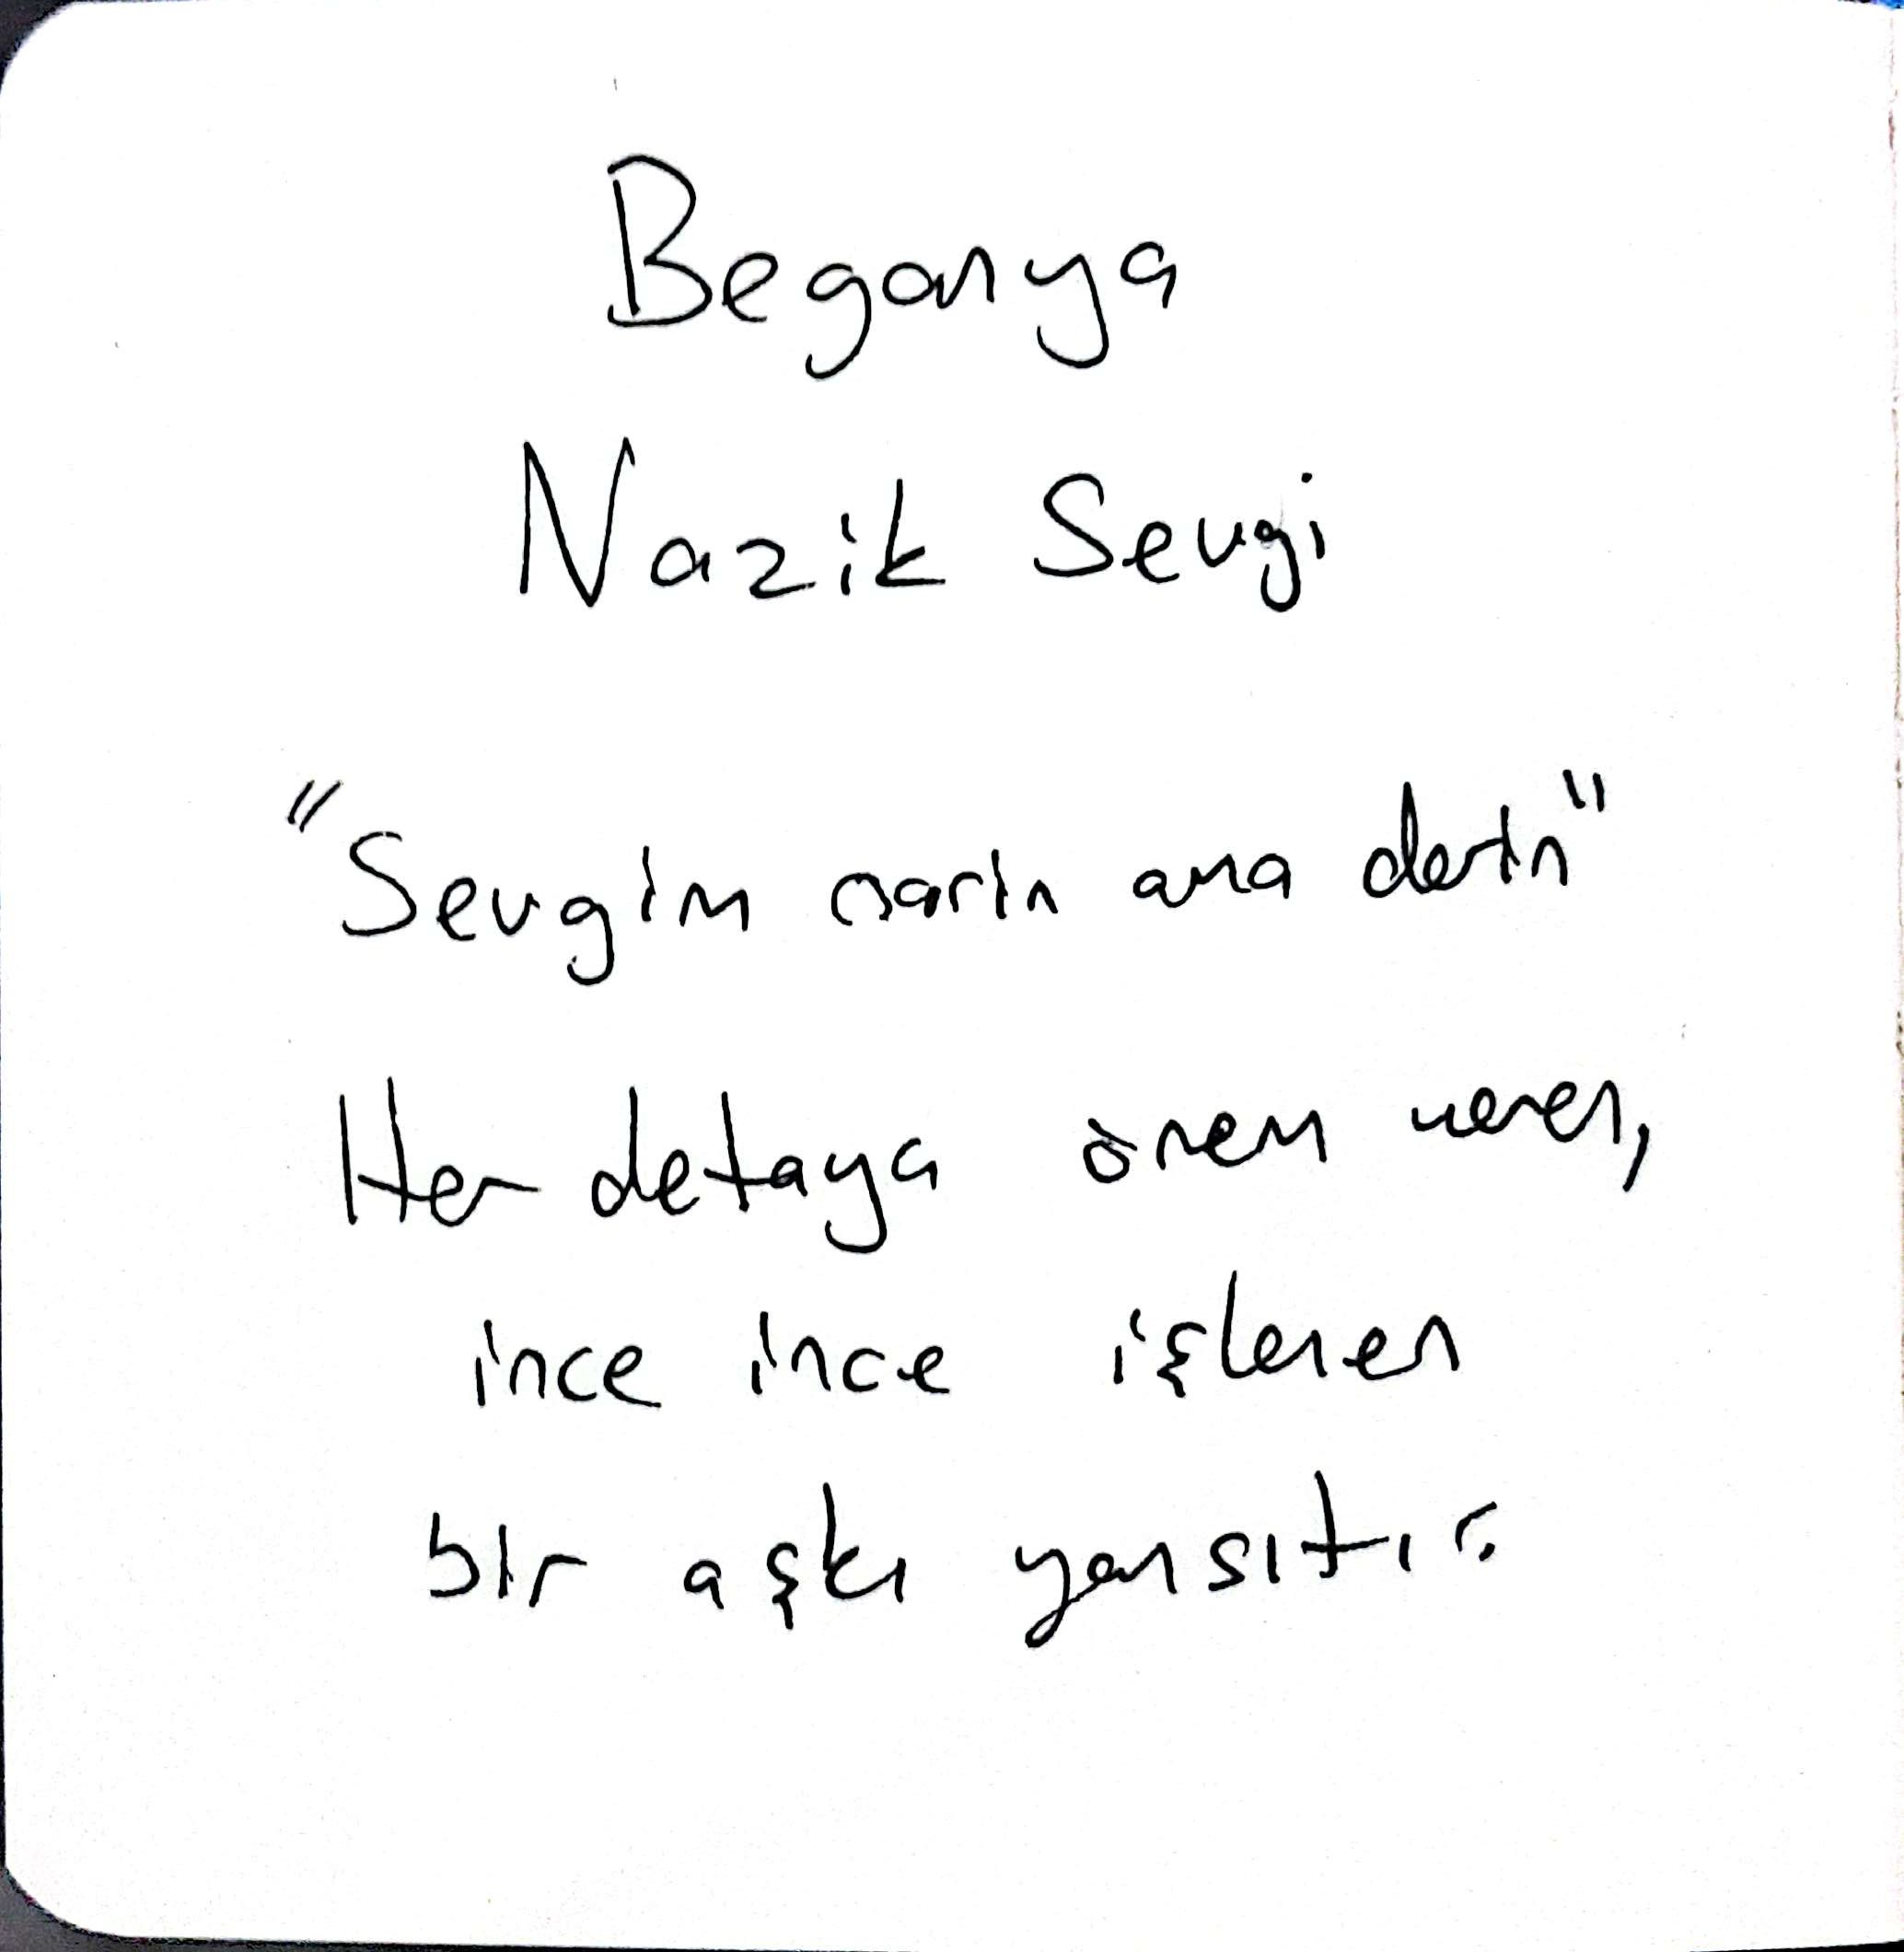 Begonya
Nazik Sevgi
"Sevgim narin ama derin"
Her detaya önem veren,
ince ince işlenen
bir aşkı yansıtır.